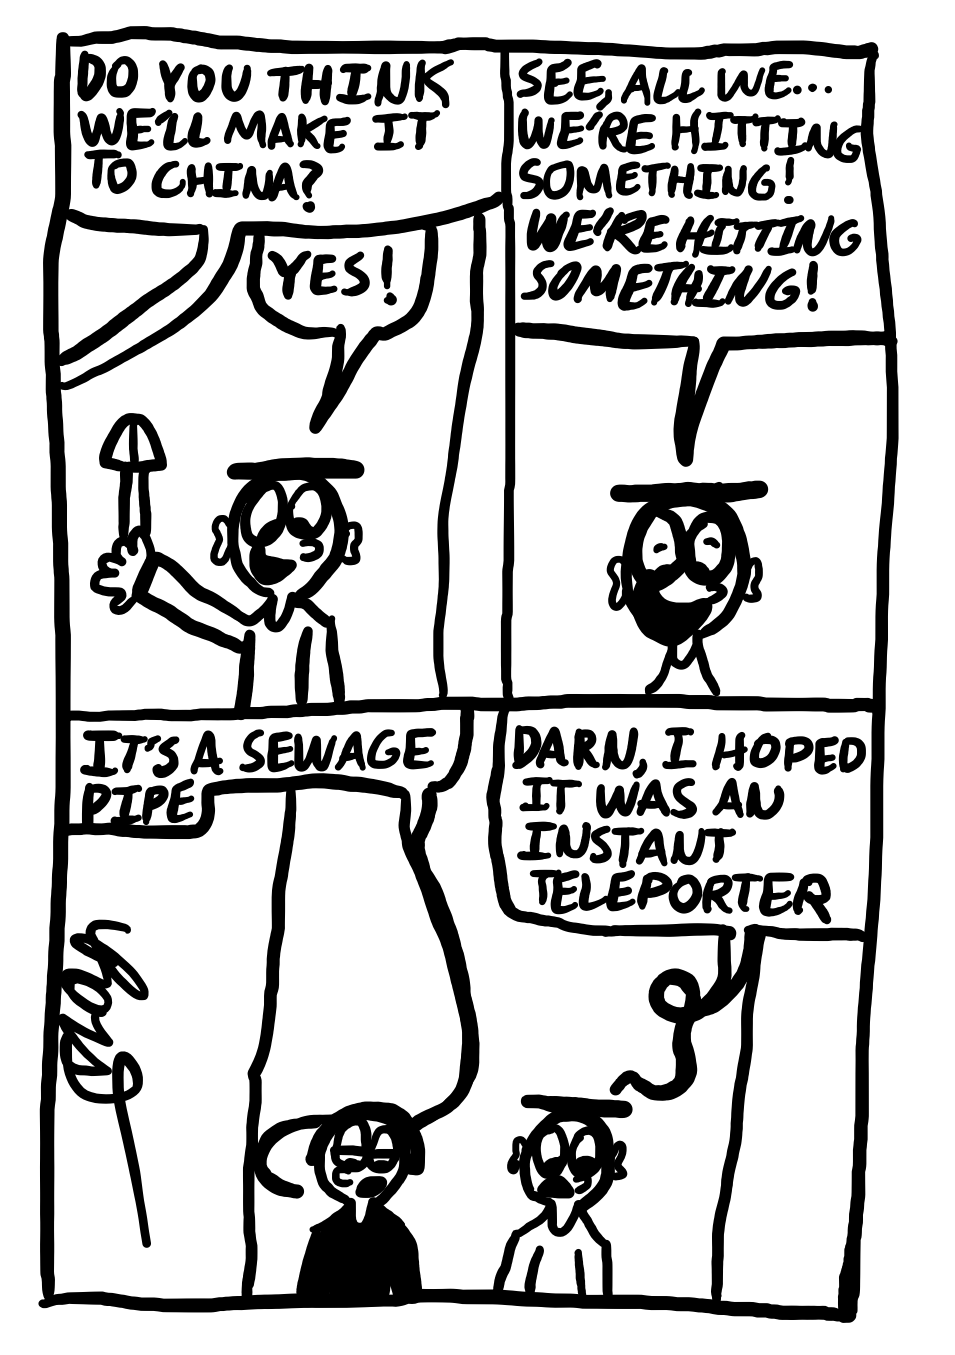 DO YOU THINK
WE'LL MAKE IT
TO CHINA?
YES!
SEE, ALL WE...
WE'RE HITTING
SOMETHING!
WE'RE HITTING
SOMETHING!
IT'S A SEWAGE
PIPE
DARN, I HOPED
IT WAS AN
INSTANT
TELEPORTER